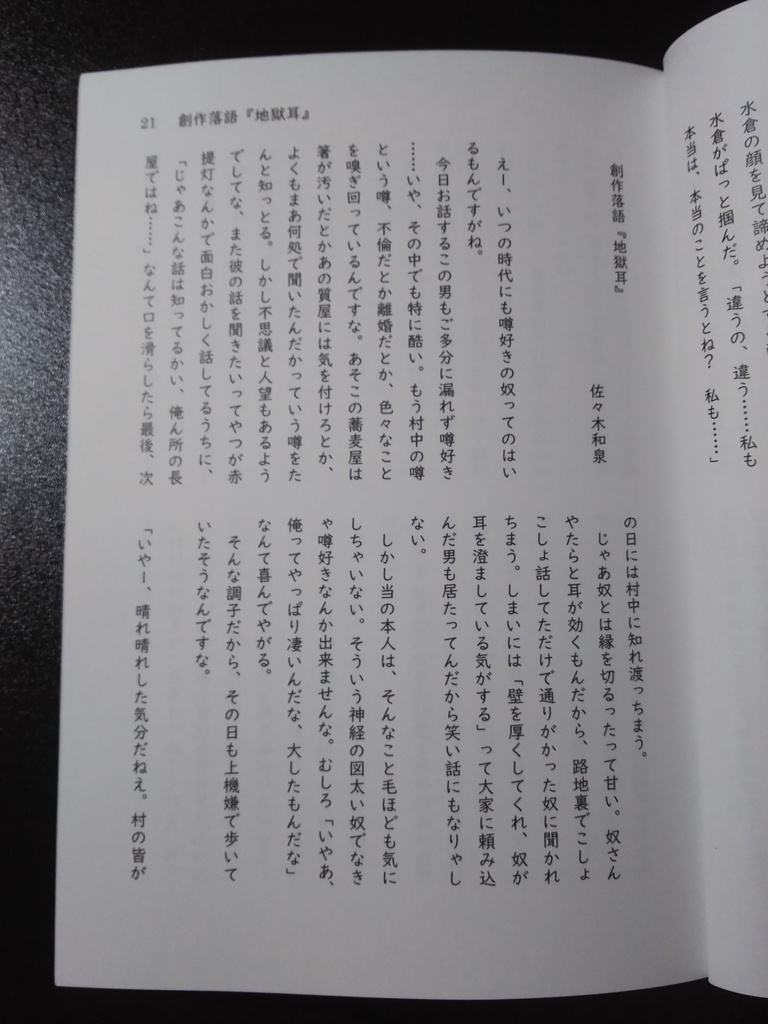 水倉の顔を見て諦めようとす
水倉がぱっと掴んだ。「違うの、違う……私も
本当は、本当のことを言うとね？　私も……」
21　創作落語『地獄耳』
創作落語『地獄耳』
佐々木和泉
えー、いつの時代にも噂好きの奴ってのはい
るもんですがね。
今日お話するこの男もご多分に漏れず噂好き
……いや、その中でも特に酷い。もう村中の噂
という噂、不倫だとか離婚だとか、色々なこと
を嗅ぎ回っているんですな。あそこの蕎麦屋は
箸が汚いだとかあの質屋には気を付けろとか、
よくもまあ何処で聞いたんだかっていう噂をた
んと知っとる。しかし不思議と人望もあるよう
でしてな、また彼の話を聞きたいってやつが赤
提灯なんかで面白おかしく話してるうちに、
「じゃあこんな話は知ってるかい、俺ん所の長
屋ではね……」なんて口を滑らしたら最後、次
の日には村中に知れ渡っちまう。
じゃあ奴とは縁を切るったって甘い。奴さん
やたらと耳が効くもんだから、路地裏でこしょ
こしょ話してただけで通りがかった奴に聞かれ
ちまう。しまいには「壁を厚くしてくれ、奴が
耳を澄ましている気がする」って大家に頼み込
んだ男も居たってんだから笑い話にもなりゃし
ない。
しかし当の本人は、そんなこと毛ほども気に
しちゃいない。そういう神経の図太い奴でなき
ゃ噂好きなんか出来ませんな。むしろ「いやあ、
俺ってやっぱり凄いんだな、大したもんだな」
なんて喜んでやがる。
そんな調子だから、その日も上機嫌で歩いて
いたそうなんですな。
「いやー、晴れ晴れした気分だねえ。村の皆が